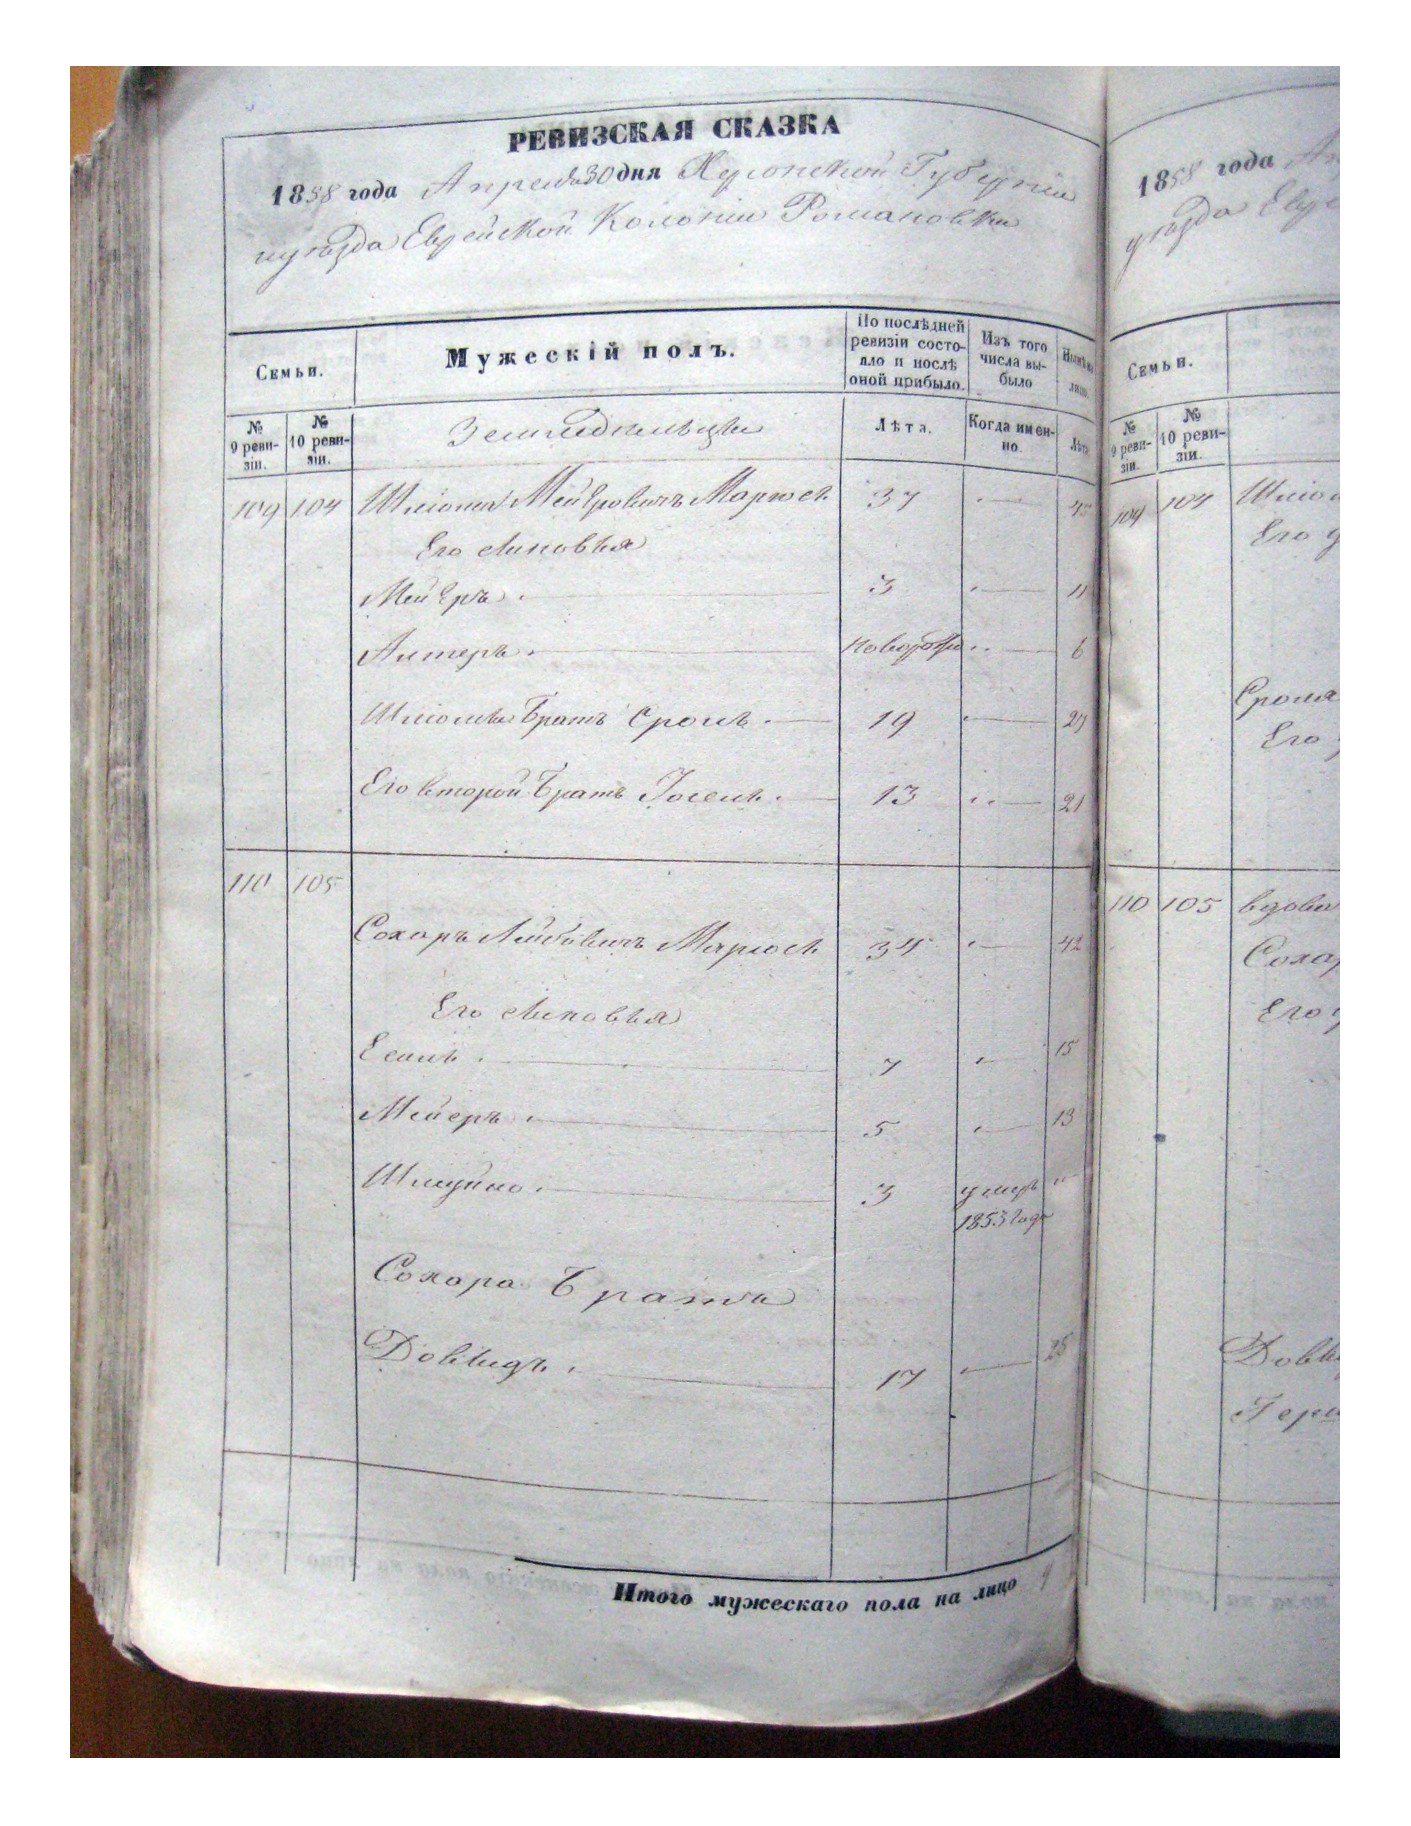 РЕВИЗСКАЯ СКАЗКА
1858 года Апреля 30 дня Херсонской Губерніи
уѣзда Еврейской Колоніи Романовки
Семьи.
Мужескій полъ.
По послѣдней ревизіи состояло и послѣ оной прибыло.
Изъ того числа выбыло
Нынѣ на лицо.
№ 9 ревизіи.
№ 10 ревизіи.
Земледѣльцы
Лѣта.
Когда именно.
Лѣта
109 104 Шліома Мейеровичъ 37 45
Его сыновья
Мейеръ 3 11
Алтеръ новорож 6
Шліомы Братъ Сролъ 19 27
Его второй Братъ Іосель 13 21
110 105
Сохоръ Лейбовичъ 34 42
Его сыновья
Есель 7 15
Мейеръ 5 13
Шмуйло 3 умеръ
1853 года
Сохора Братъ
Довыдъ 17 25
Итого мужескаго пола на лицо 9
1858 года
уѣзда
Семьи.
№ 9 ревизіи.
№ 10 ревизіи.
109 104
Его
110 105 вдова
Его